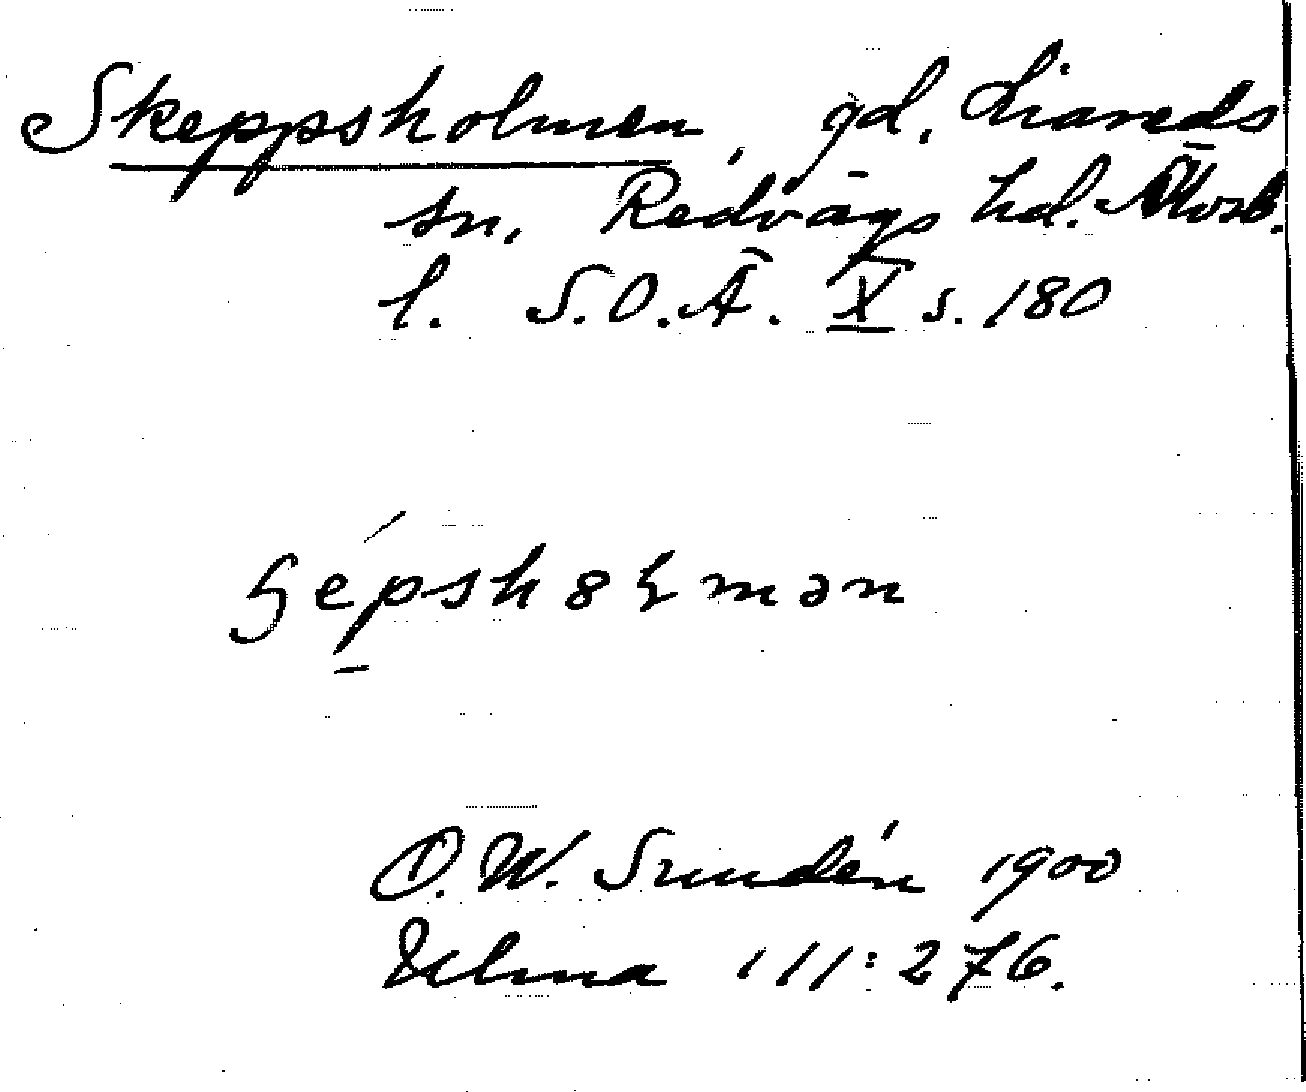 Skeppsholmen, gd, Liareds
sn, Redvägs hd. Älvsb.
l. S.O.Ä. X s. 180
O.W. Sundén 1900
Ulma 111:276.